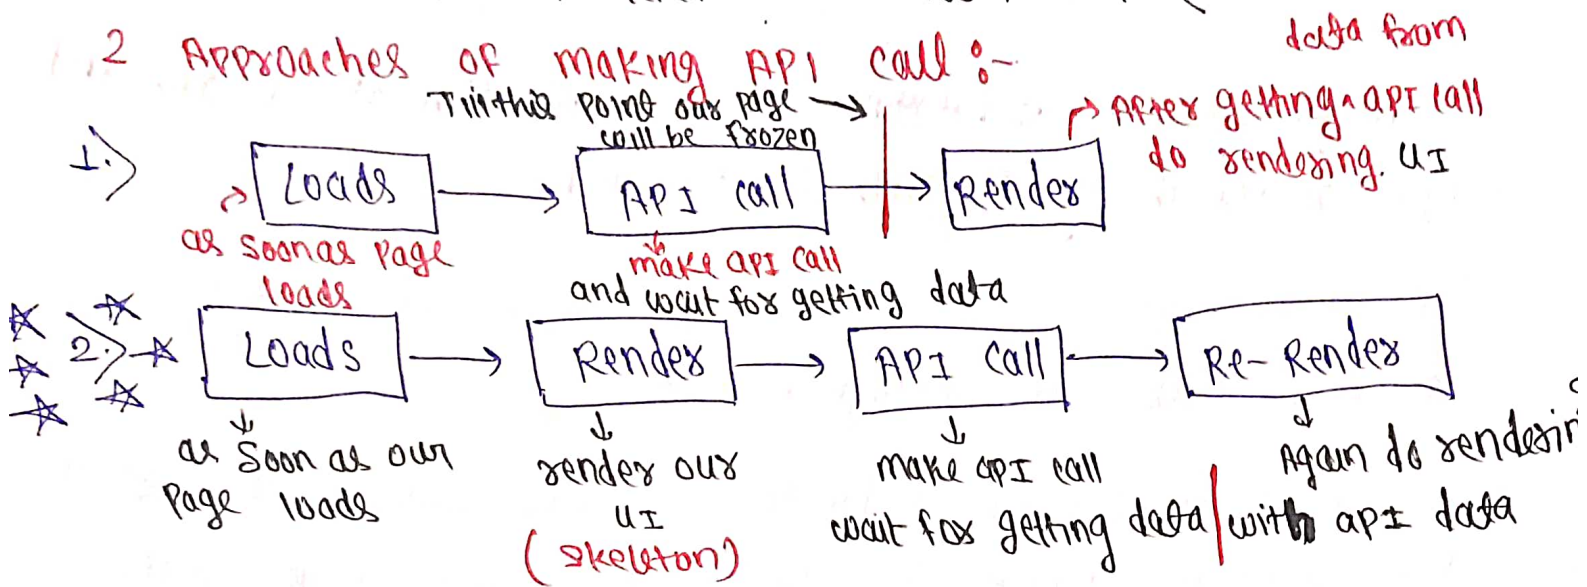 2 Approaches of making API call :-
data from
Till this point our page →
will be frozen
→ After getting ^ API call
do rendering. UI
1.>
Loads → API call → Render
as soon as page
loads
make api call
and wait for getting data
2.> Loads → Render → API call → Re-Render
as soon as our
page loads
render our
UI
(skeleton)
make API call
wait for getting data
Again do renderin
with api data